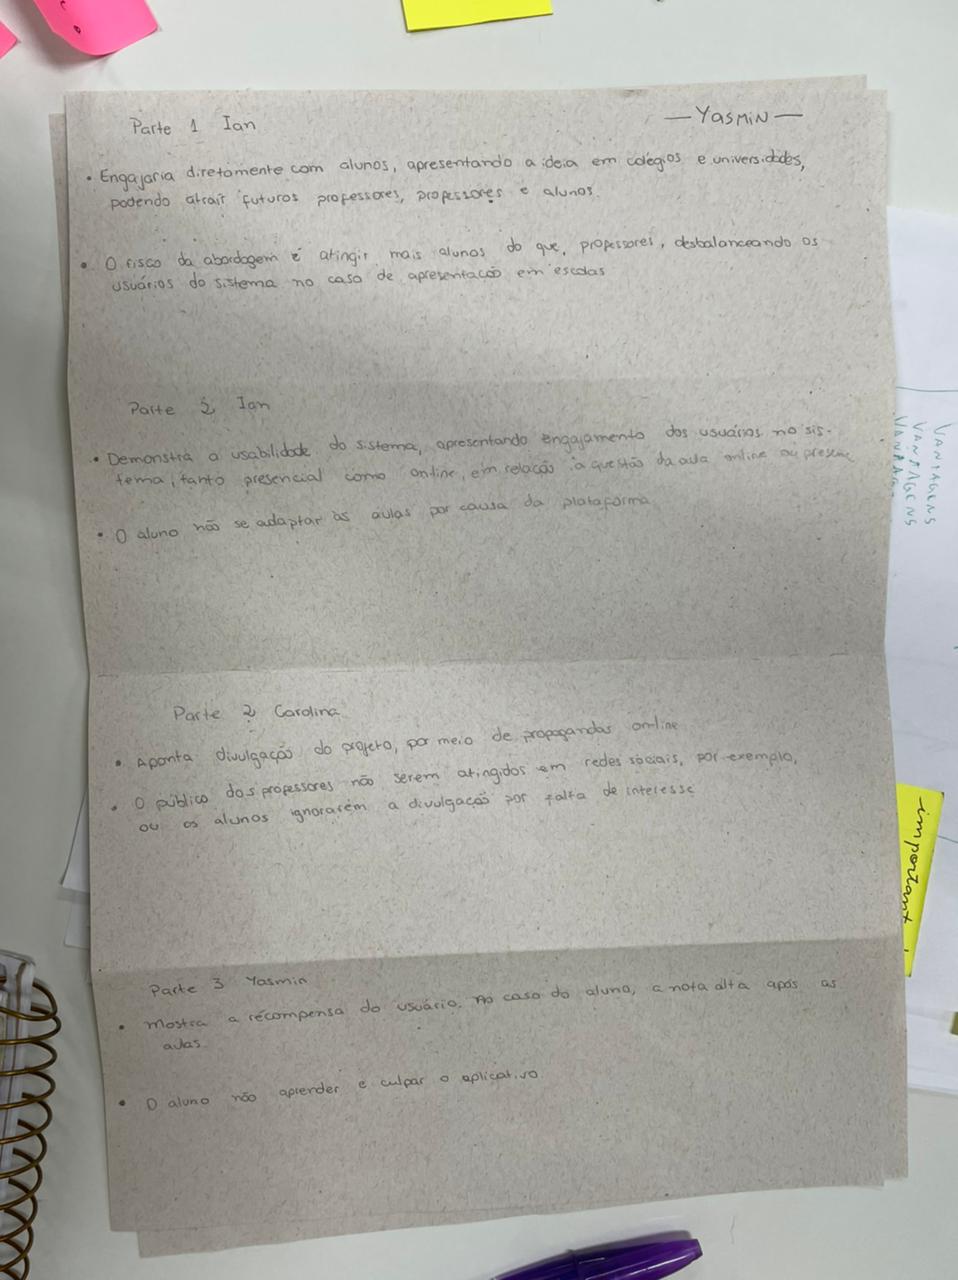 — Yasmin —
Parte 1 Ian
• Engajaria diretamente com alunos, apresentando a ideia em colégios e universidades,
podendo atrair futuros professores, professores e alunos.
• O risco da abordagem é atingir mais alunos do que, professores, desbalanceando os
usuários do sistema no caso de apresentação em escolas
Parte 2 Ian
• Demonstra a usabilidade do sistema, apresentando engajamento dos usuários no sis-
tema, tanto presencial como online, em relação à questão da aula online ou
• O aluno não se adaptar às aulas por causa da plataforma
Parte 2 Carolina
• Aponta divulgação do projeto, por meio de propagandas online
• O público dos professores não serem atingidos em redes sociais, por exemplo,
ou os alunos ignorarem a divulgação por falta de interesse
Parte 3 Yasmin
• Mostra a récompensa do usuário. No caso do aluno, a nota alta após as
aulas.
• O aluno não aprender e culpar o aplicativo.
VANTAGENS
VANTAGENS
important